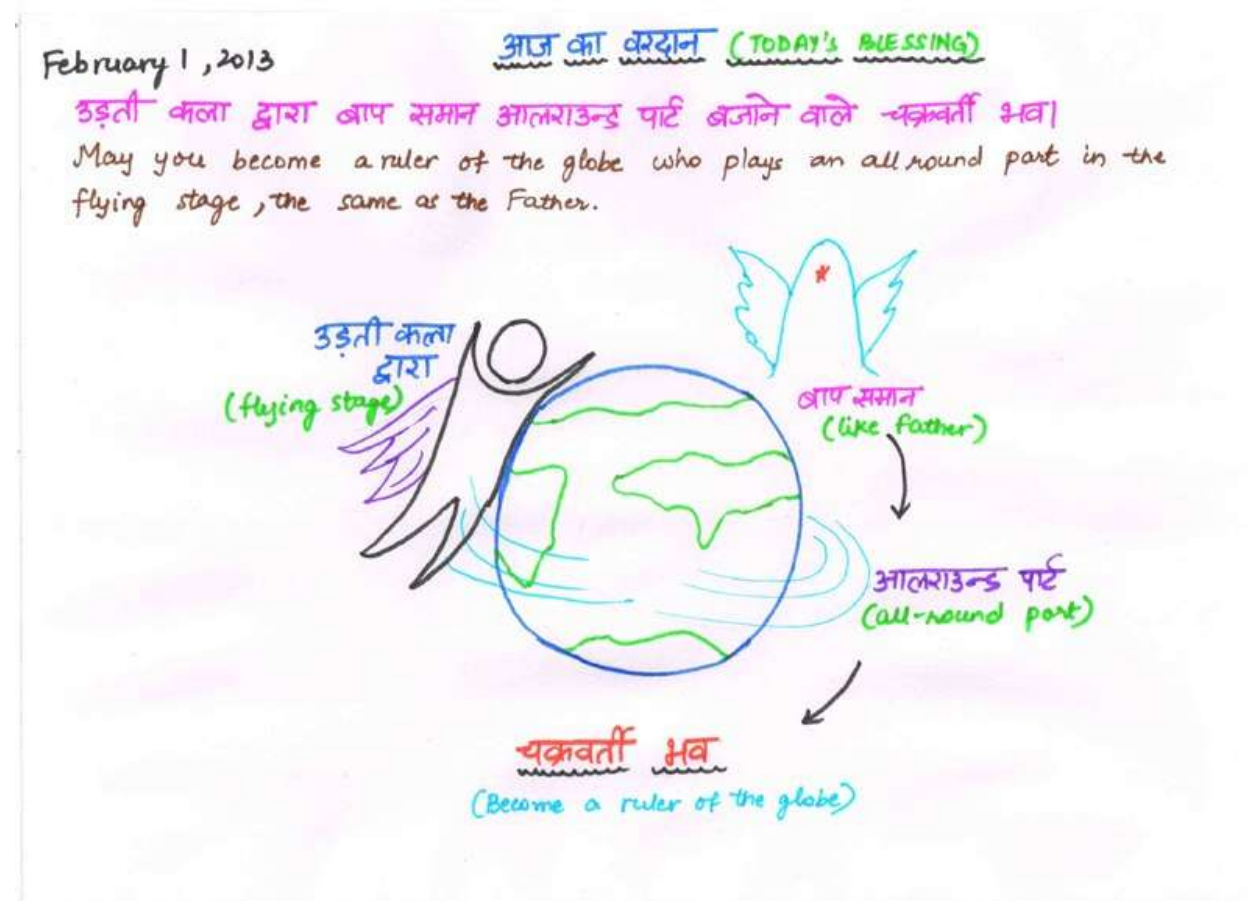 February 1, 2013
आज का वरदान (TODAY'S BLESSING)
उड़ती कला द्वारा बाप समान आलराउन्ड पार्ट बजाने वाले चक्रवर्ती भव।
May you become a ruler of the globe who plays an all round part in the
flying stage, the same as the Father.
उड़ती कला
द्वारा
(flying stage)
बाप समान
(like Father)
आलराउन्ड पार्ट
(all-round part)
चक्रवर्ती भव
(Become a ruler of the globe)